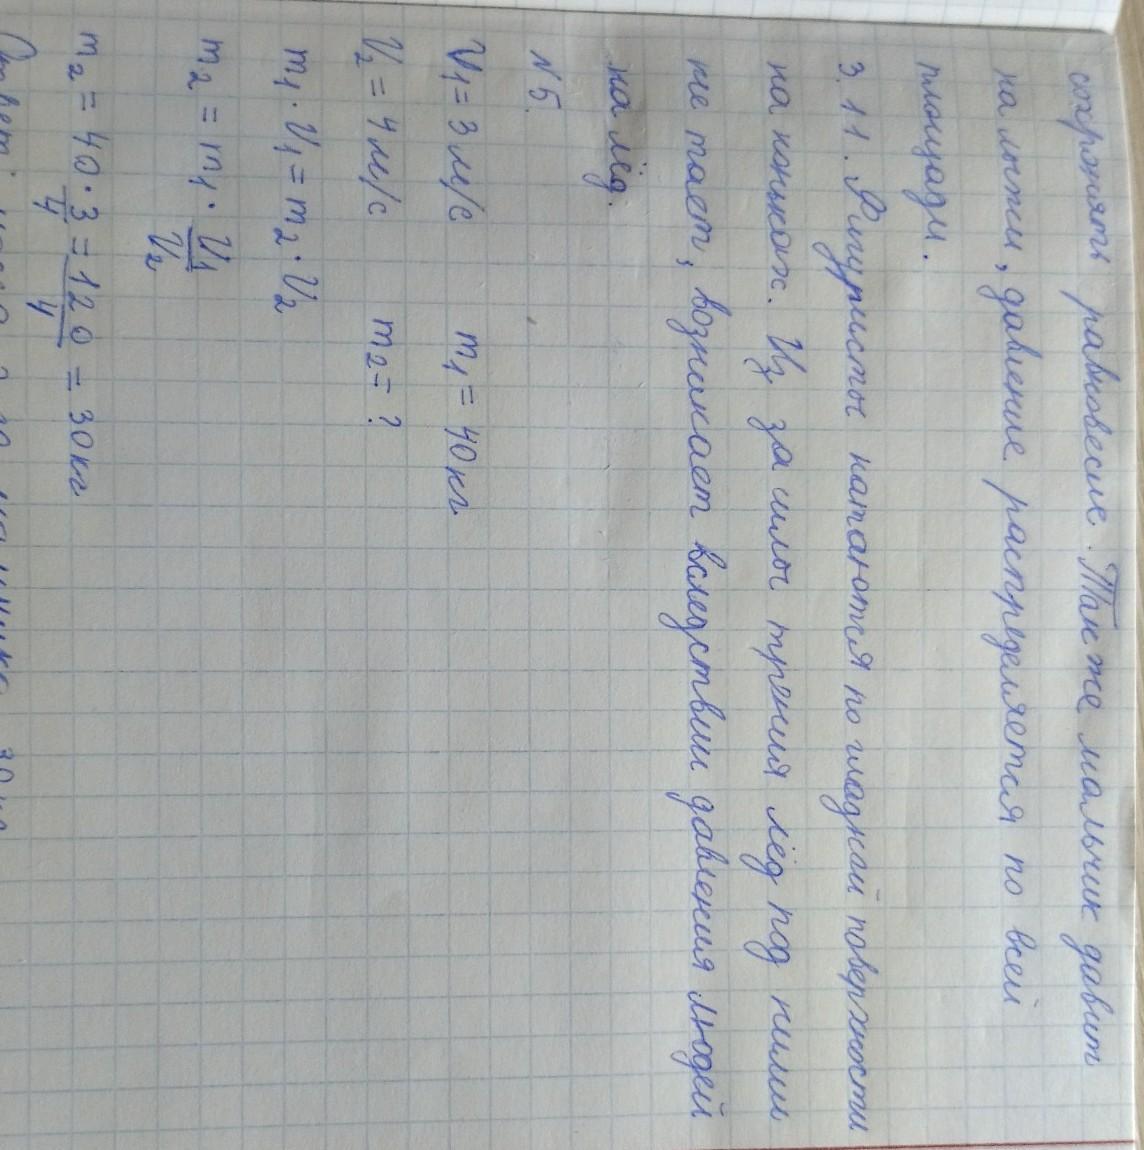 сохранять равновесие. Так же мальчик давит
на лыжи, давление распределяется по всей
площади.
3.11. Фигуристы катаются по гладкой поверхности
на коньках. Из за силы трения лёд под ними
не тает, возникает вследствии давления людей
на лёд.
N 5.
V₁ = 3 м/с m₁ = 40 кг
V₂ = 4 м/с m₂ = ?
m₁ · V₁ = m₂ · V₂
m₂ = m₁ · V₁/V₂
m₂ = 40 · 3/4 = 120/4 = 30 кг
Ответ: масса 2-го мальчика 30 кг